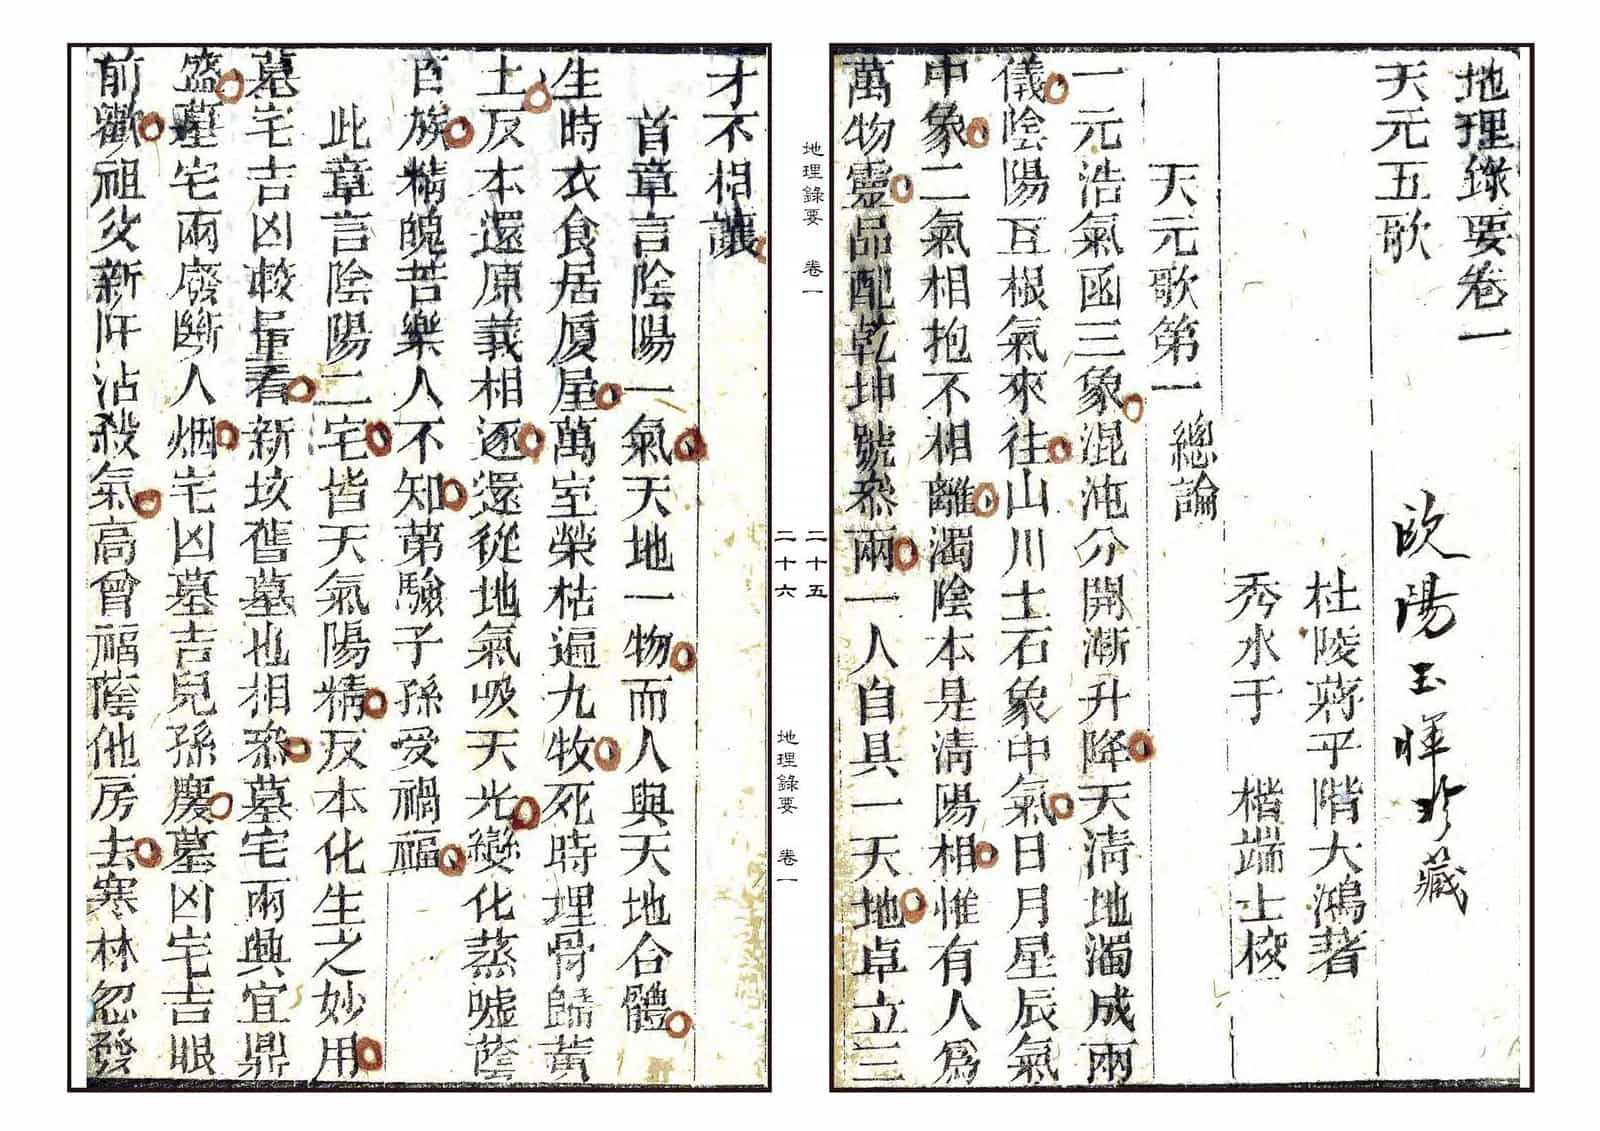 地理錄要卷一
天元五歌
歐陽玉暉珍藏
杜陵蔣平階大鴻著
秀水于楷端士校
天元歌第一 總論
一元浩氣函三象混沌分開漸升降天清地濁成兩
儀陰陽互根氣來往山川土石象中氣日月星辰氣
中象二氣相抱不相離濁陰本是清陽相惟有人為
萬物靈品配乾坤號叅兩一人自具一天地卓立三
地理錄要 卷一
二十五
二十六
地理錄要 卷一
才不相讓
首章言陰陽一氣天地一物而人與天地合體
生時衣食居厦屋萬室榮枯遍九牧死時埋骨歸黃
土反本還原義相逐還從地氣吸天光變化蒸噓蔭
百族精魄苦樂人不知第驗子孫受禍福
此章言陰陽二宅皆天氣陽精反本化生之妙用
墓宅吉凶較量看新垓舊墓也相叅墓宅兩興宜鼎
盛墓宅兩廢斷人烟宅凶墓吉兒孫慶墓凶宅吉眼
前歡祖父新阡沾殺氣高曾福蔭他房去寒林忽發